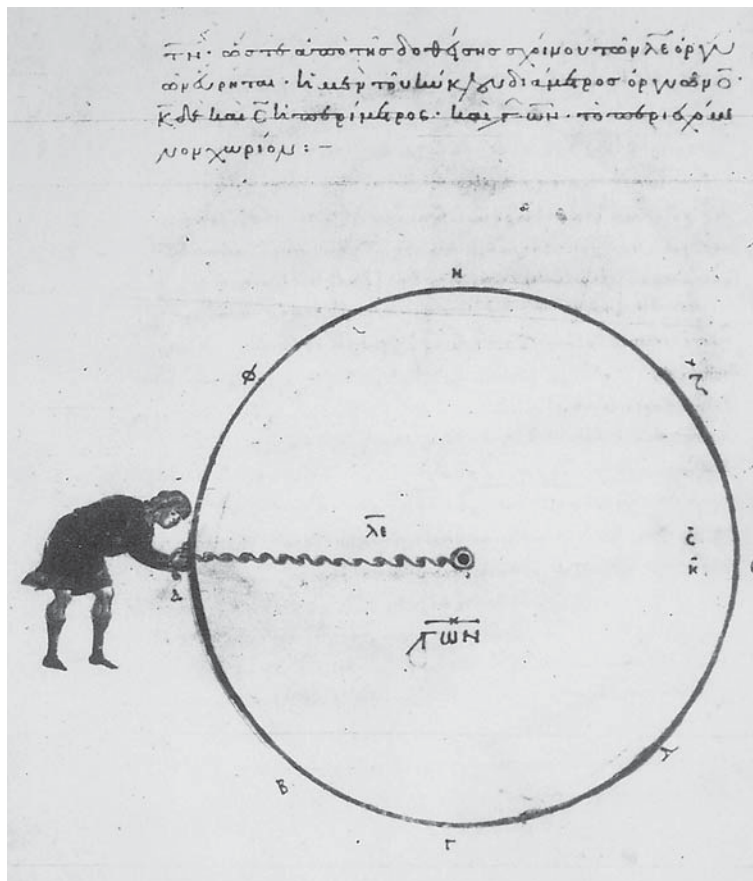 τ̅ν̅· ὥστε ἀπὸ τῆς δοθείσης σχοίνου τῶν λ̅ε̅ ὀργυ
ιῶν εὕρηται· ἡ μὲν τοῦ κύκλου διάμετρος ὀργυιῶν ο̅·
κ̅ δὲ καὶ σ̅ ἡ περίμετρος· καὶ ͵γ̅ω̅ν̅· τὸ περιεχόμε
νον χωρίον:–
Η
Φ
Ζ
λ̅ε̅
σ̅
κ̅
Δ
͵Γ̅Ω̅Ν̅
Β
Α
Γ